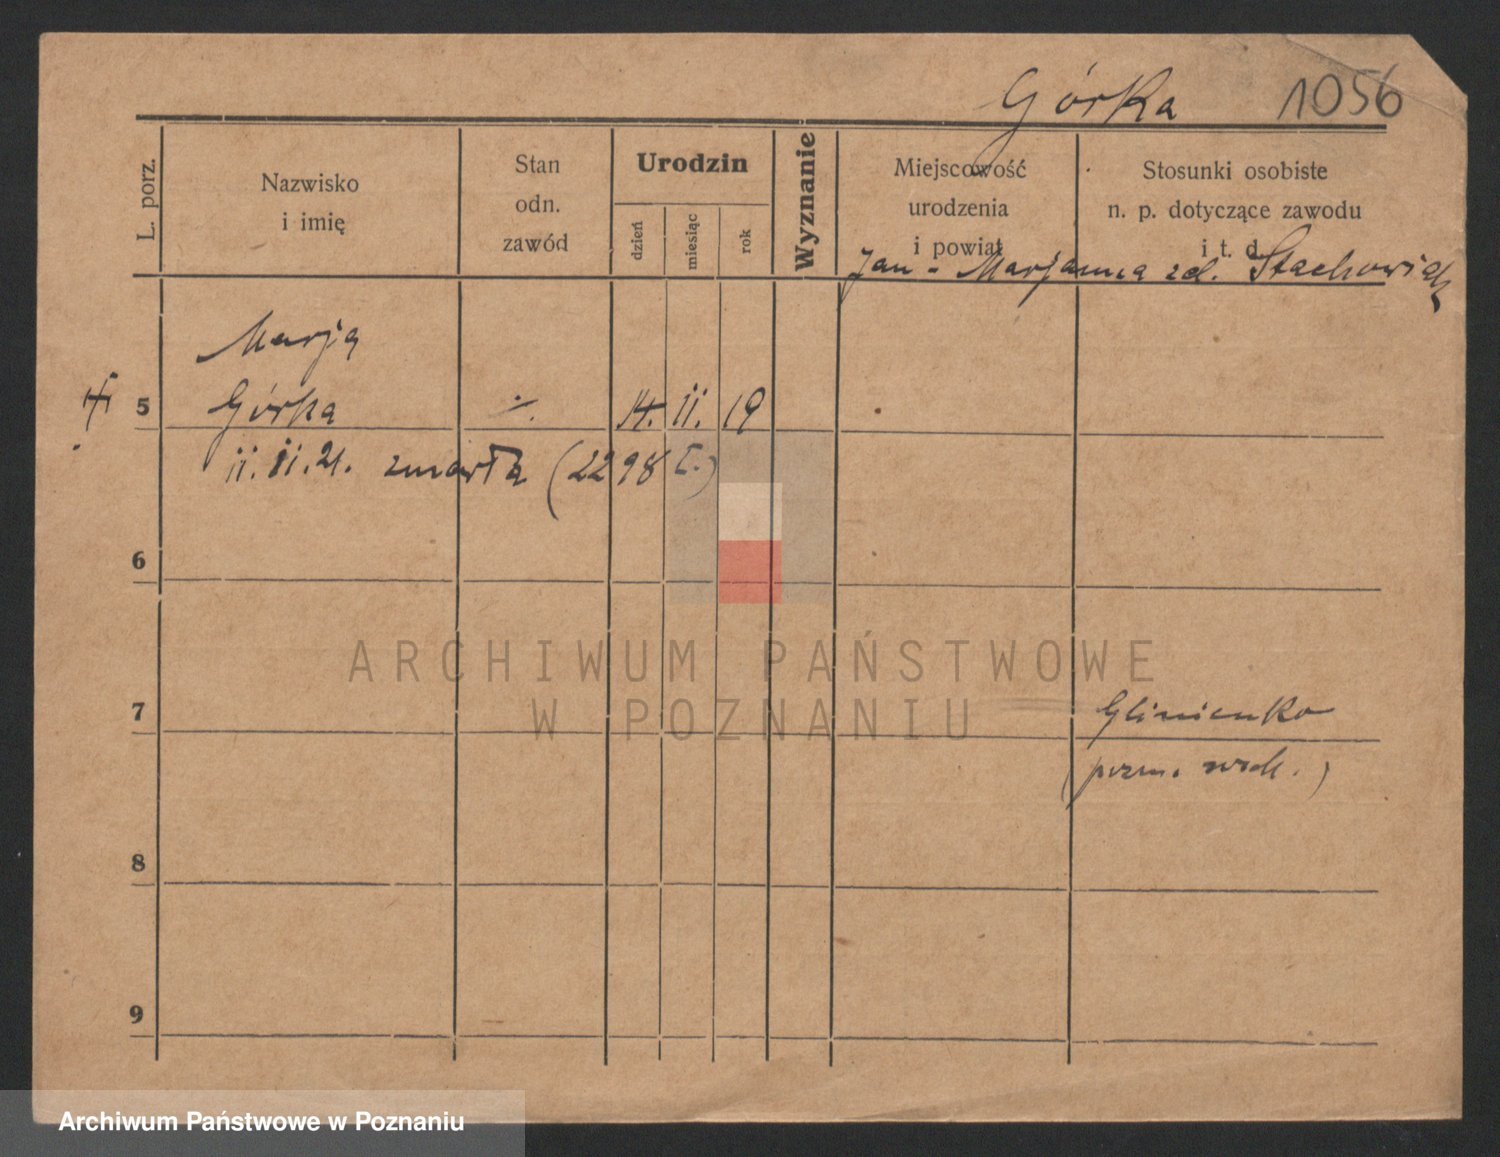 Górka 1056
L. porz.
Nazwisko
i imię
Stan
odn.
zawód
Urodzin
dzień
miesiąc
rok
Wyznanie
Miejscowość
urodzenia
i powiat
Stosunki osobiste
n. p. dotyczące zawodu
i t. d.
Jan - Marjanna zd. Stachowiak
Marja
5 Górka ·/. 14. ii. 19
ii. ii. 21. zmarła (2298 I.)
6
ARCHIWUM PAŃSTWOWE
W POZNANIU
7 Glinienko
( wsch. )
8
9
Archiwum Państwowe w Poznaniu